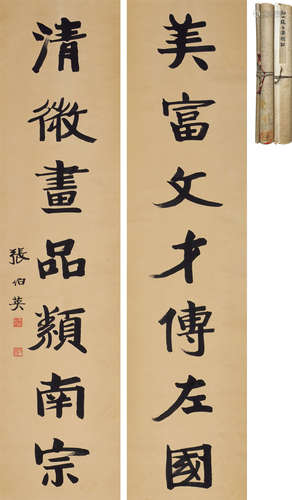 美富文才傳左國
清微畫品類南宗
張伯英